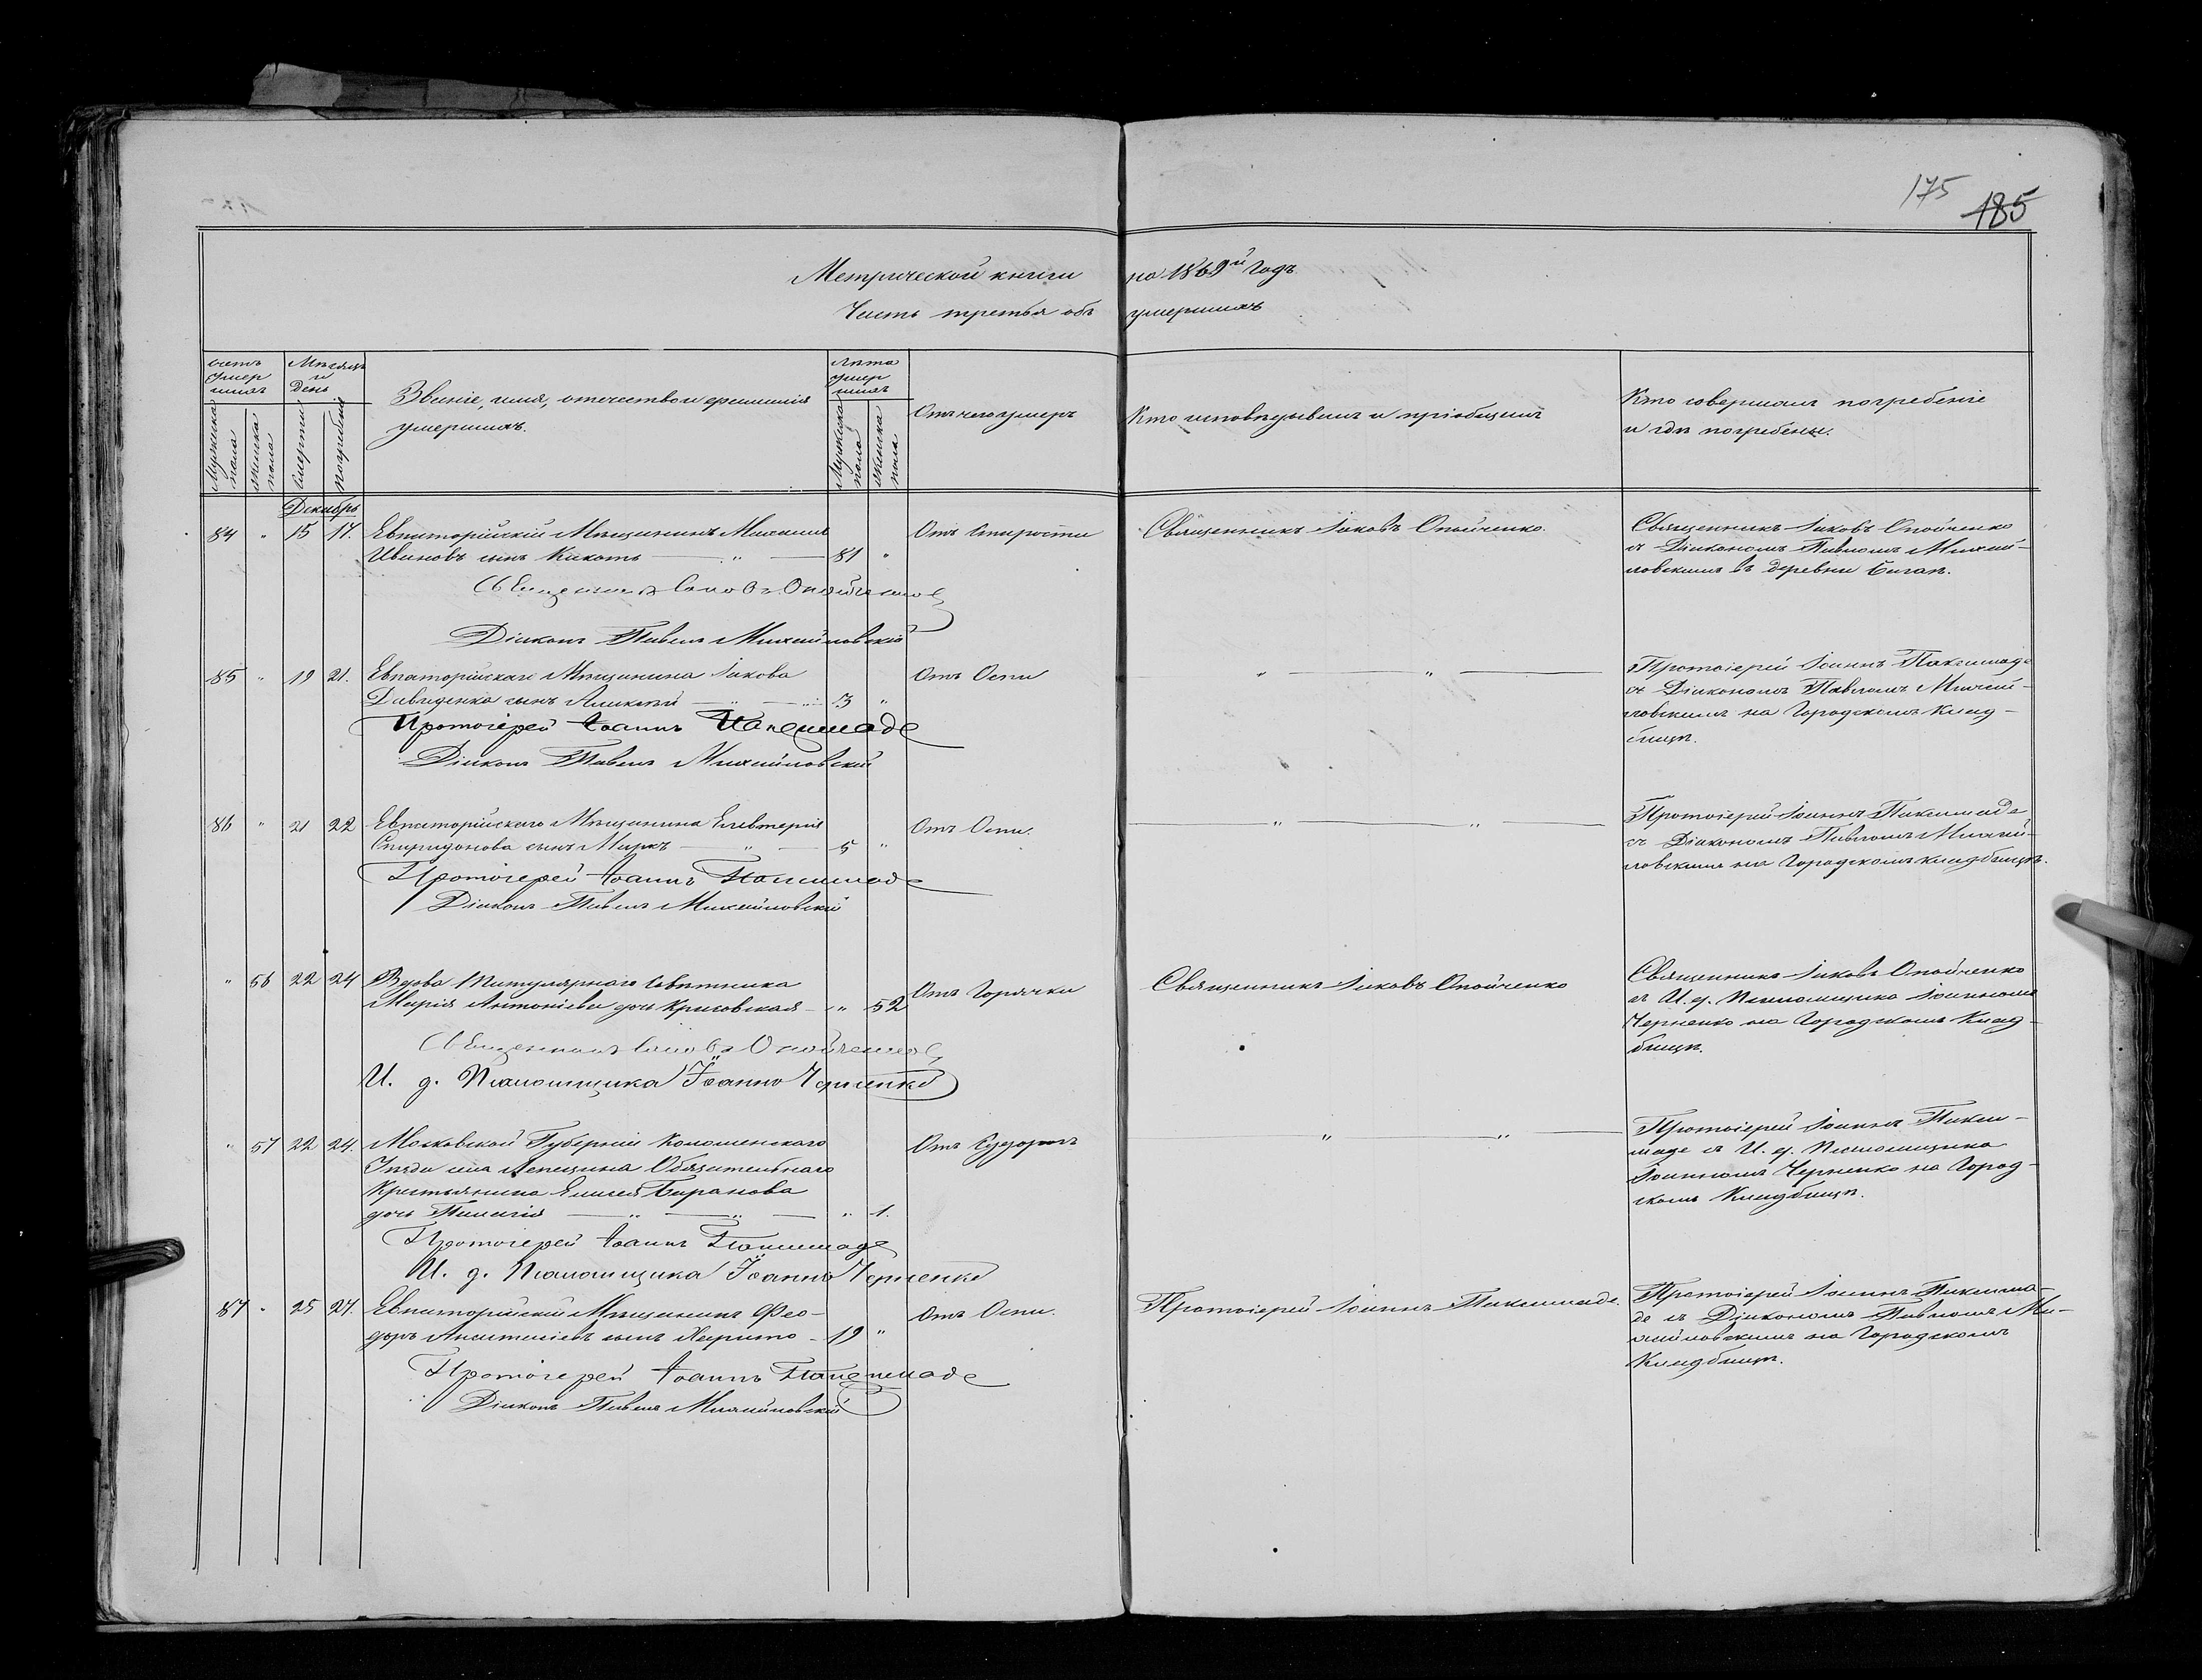 175
185
Метрической книги на 1869й Годъ
Часть третья объ умершихъ
счетъ умершихъ
Мужеска пола
Женска пола
Мѣсяцъ и День
Смерти
Погребенія
Званіе, имя, отечество и фамилія
умершихъ.
Лѣта умершихъ
Мужеска пола
Женска пола
Отъ чего умеръ
Кто исповѣдывалъ и пріобщилъ
Кто совершалъ погребеніе
и гдѣ погребены.
Декабрь
84 " 15 17. Евпаторійскій Мѣщанинъ Михаилъ
Ивановъ сынъ Кикоть — " — 81 "
Отъ Старости
Священникъ Іаковъ Опойченко.
Священникъ Іаковъ Опойченко
съ Діакономъ Павломъ Михай-
ловскимъ въ деревни
Священникъ Іаковъ Опойченко
Діаконъ Павелъ Михайловскій
85 " 19 21. Евпаторійскаго Мѣщанина Іакова
Давиденка сынъ Алексѣй — " — 3 "
Отъ Оспы
" — " —
Протоіерей Іоаннъ Паксимаде
съ Діакономъ Павломъ Михай-
ловскимъ на Городскомъ Клад-
бищѣ.
Протоіерей Іоаннъ Паксимаде
Діаконъ Павелъ Михайловскій
86 " 21 22 Евпаторійскаго Мѣщанина Елевтерія
Спиридонова сынъ Маркъ — " — 5 "
Отъ Оспы.
— " — " —
Протоіерей Іоаннъ Паксимаде
съ Діакономъ Павломъ Михай-
ловскимъ на Городскомъ кладбищѣ.
Протоіерей Іоаннъ Паксимаде
Діаконъ Павелъ Михайловскій
" 56 22 24 Вдова Титулярнаго Совѣтника
Марія Антоніева дочь Крысовская — " 52
Отъ Горячки
Священникъ Іаковъ Опойченко
Священникъ Іаковъ Опойченко
съ И. д. Псаломщика Іоанномъ
Черненко на Городскомъ Клад-
бищѣ.
Священникъ Іаковъ Опойченко
И. д. Псаломщика Іоаннъ Черненко
" 57 22 24. Московской Губерніи Коломенскаго
Уѣзда села Лепецина Обязательнаго
Крестьянина Елисея Баранова
дочь Пелагія — " — " — " 1.
Отъ Судорогъ
" — " —
Протоіерей Іоаннъ Пакси-
маде съ И. д. Псаломщика
Іоанномъ Черненко на Город-
скомъ Кладбищѣ.
Протоіерей Іоаннъ Паксимаде
И. д. Псаломщика Іоаннъ Черненко
87 " 25 27. Евпаторійскій Мѣщанинъ Фео-
доръ Анастасіевъ сынъ Харито — 19 "
Отъ Оспы.
Протоіерей Іоаннъ Паксимаде.
Протоіерей Іоаннъ Паксима-
де съ Діакономъ Павломъ Ми-
хайловскимъ на Городскомъ
Кладбищѣ.
Протоіерей Іоаннъ Паксимаде
Діаконъ Павелъ Михайловскій